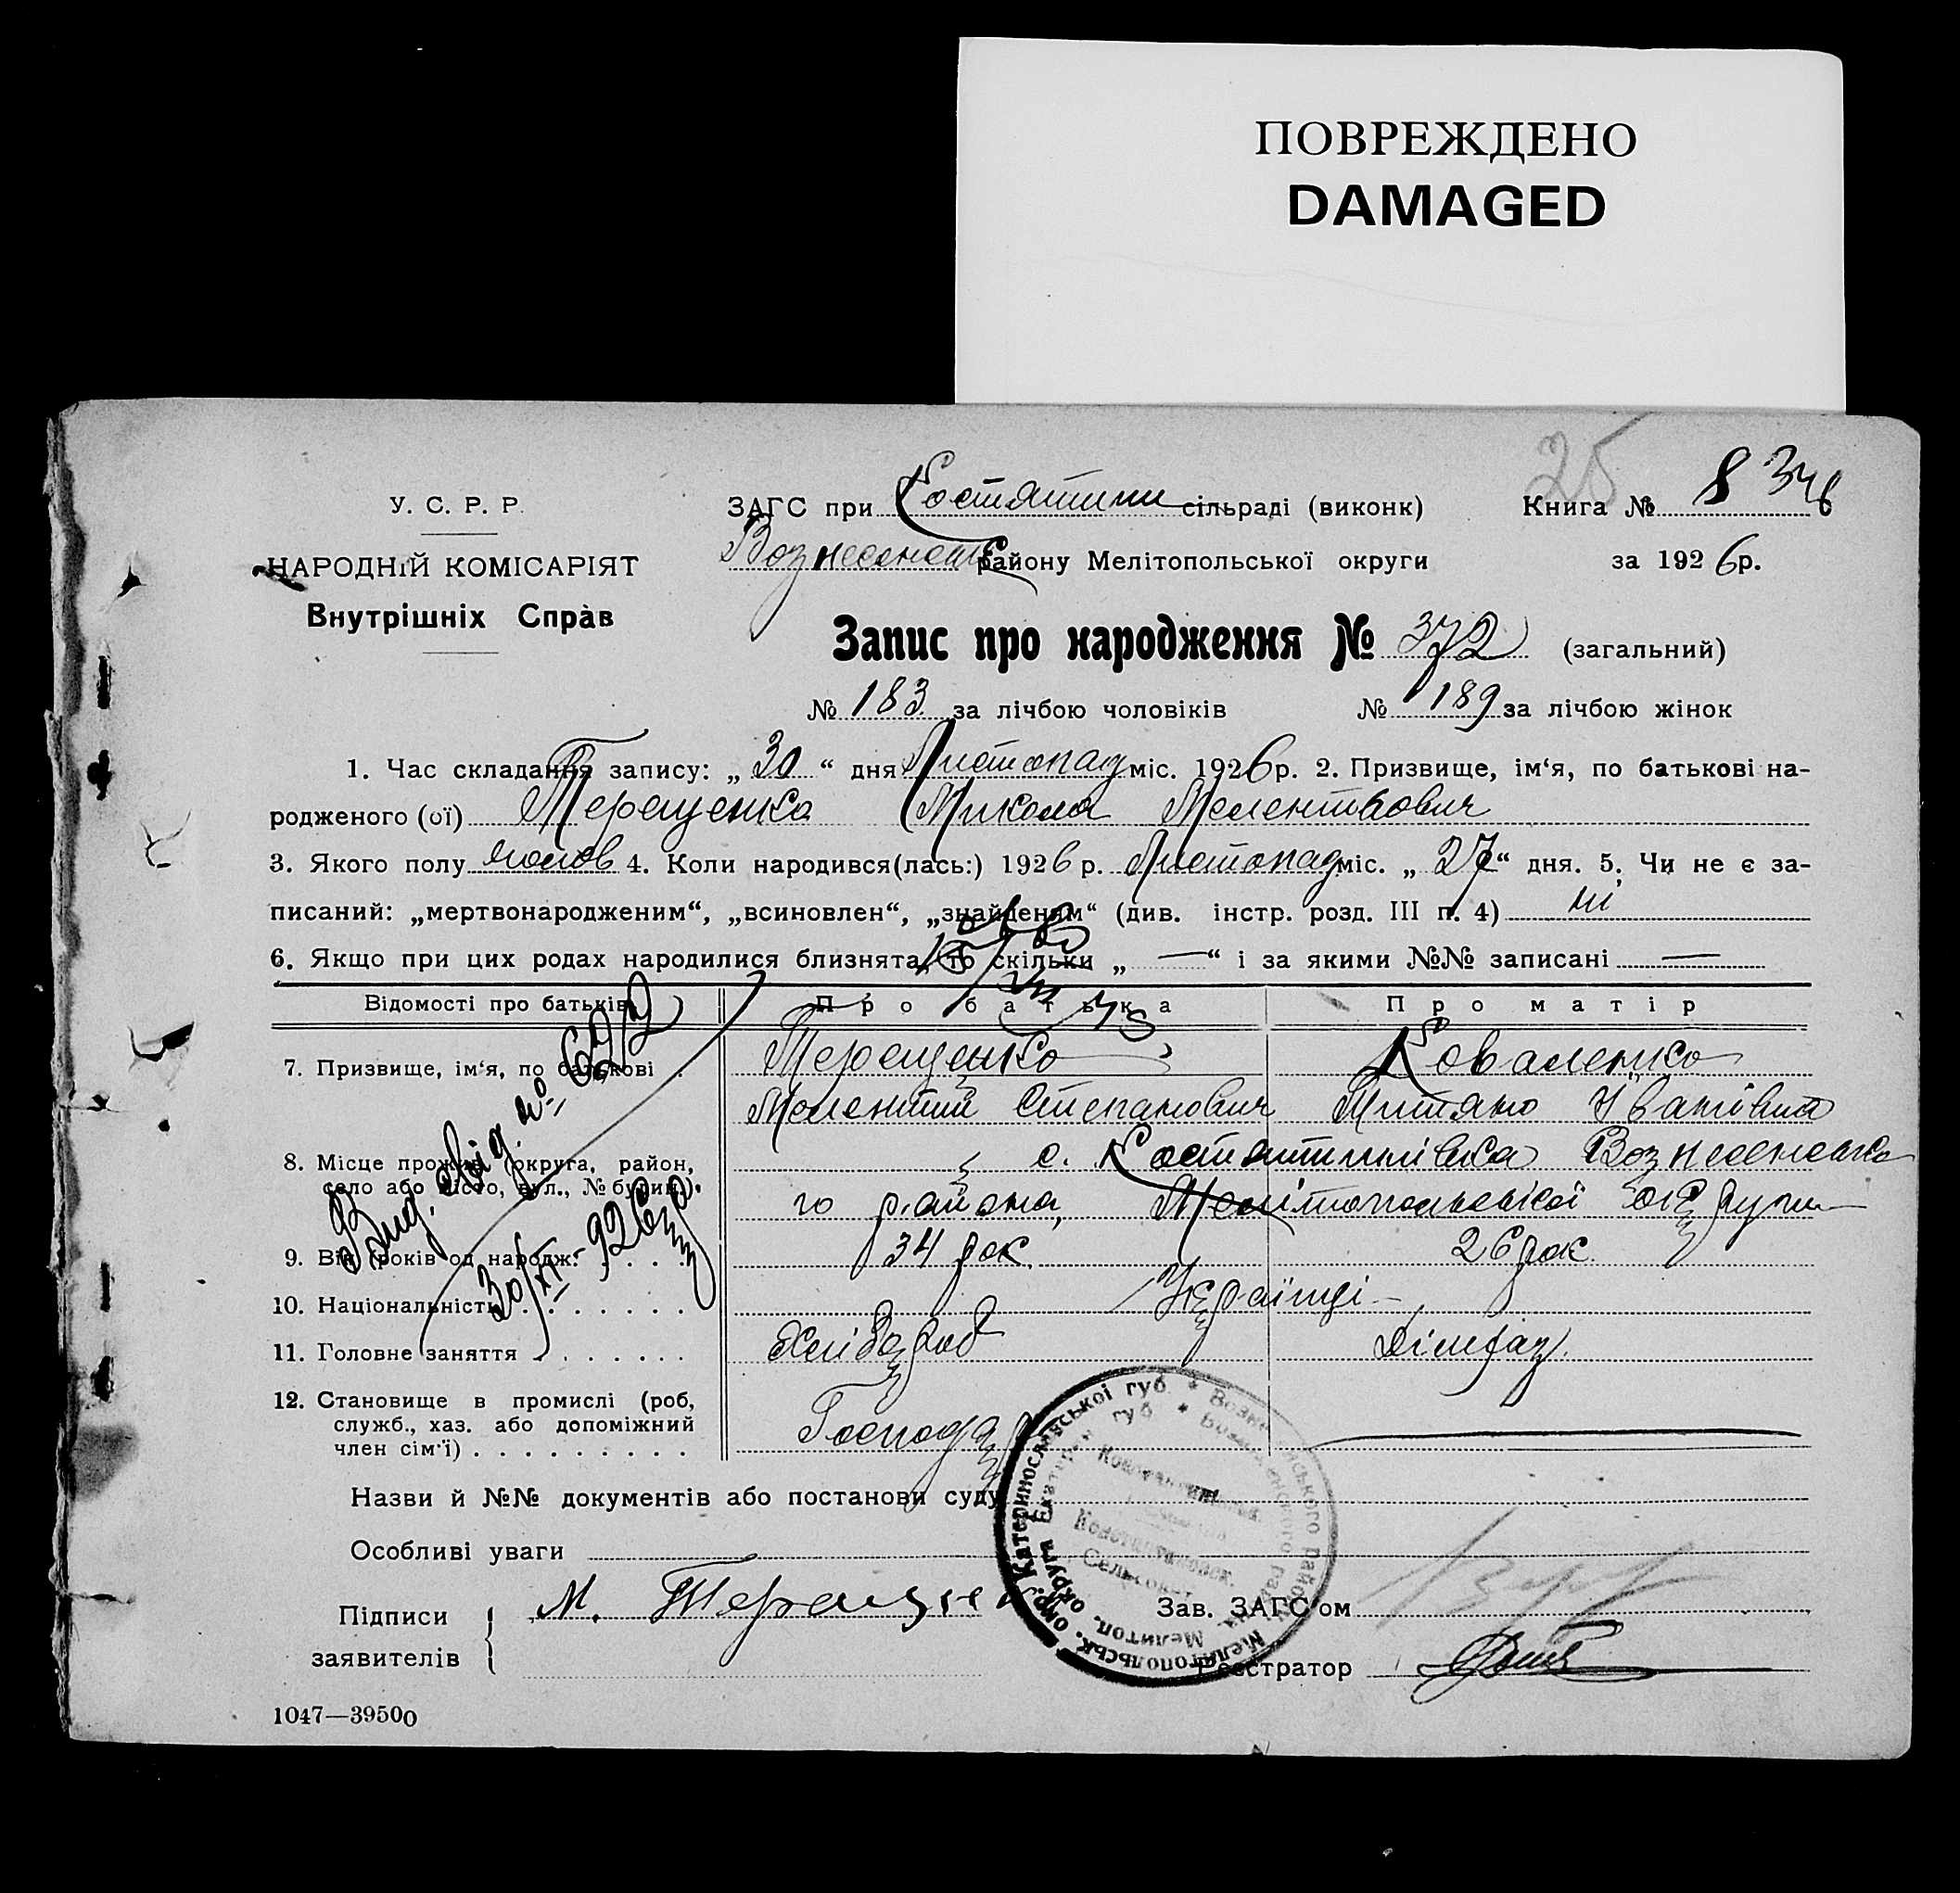 ПОВРЕЖДЕНО
DAMAGED
25
У. С. Р. Р.
НАРОДНІЙ КОМІСАРІЯТ
Внутрішніх Справ
ЗАГС при Костянтини сільраді (виконк)
Книга № 8 346
Вознесенськ району Мелітопольської округи
за 1926 р.
Запис про народження № 372 (загальний)
№ 183 за лічбою чоловіків № 189 за лічбою жінок
1. Час складання запису: „ 30 “ дня Листопад міс. 1926 р. 2. Призвище, ім‘я, по батькові на-
родженого (ої) Терещенко Микола Мелентьович
3. Якого полу чолов 4. Коли народився(лась:) 1926 р. Листопад міс. „ 27 “ дня. 5. Чи не є за-
писаний: „мертвонародженим“, „всиновлен“, „знайденим“ (див. інстр. розд. III п. 4) ні
6. Якщо при цих родах народилися близнята, то скільки „ — “ і за якими №№ записані —
Відомості про батьків
Про батька
Про матір
7. Призвище, ім‘я, по батькові .
Терещенко
Коваленко
Мелентий Степанович
Іванівна
8. Місце прожив. (округа, район,
село або місто, вул., № будин.).
с. Костянтинівка Вознесенсько
го району, Мелітопольської округи
9. Вік (років од народж. . . . .
34 рок.
26 рок.
10. Національність . . . . . . . .
Українці
11. Головне заняття . . . . . . .
Хлібороб
12. Становище в промислі (роб,
служб., хаз. або допоміжний
член сім‘ї) . . . . . . . . .
Господар
Вид. свід. № 692
30/XI-926 р
Назви й №№ документів або постанови суду
Особливі уваги
Підписи
заявителів
М. Терещенк
Зав. ЗАГС‘ом
Реєстратор
Мелітопольськ. окр. Катеринославської губ. * Вознесенського Району
Мелитоп. округа
Сельсовет
1047—39500